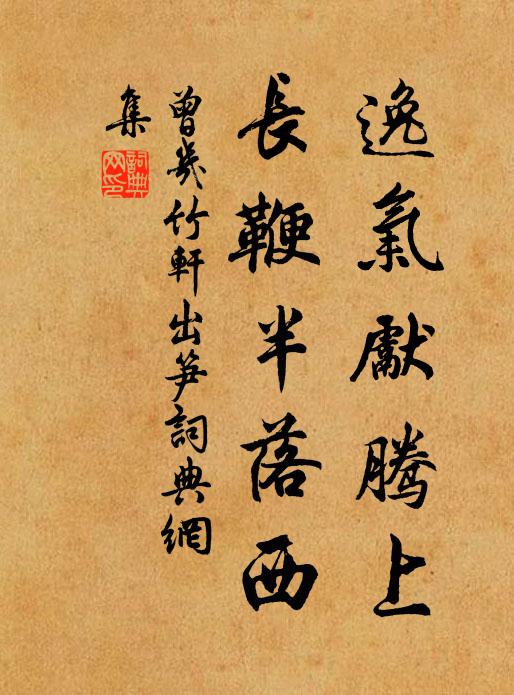 逸氣獻騰上
長鞭半落西
曾幾竹軒出笋詞典網
集
詞典
网印